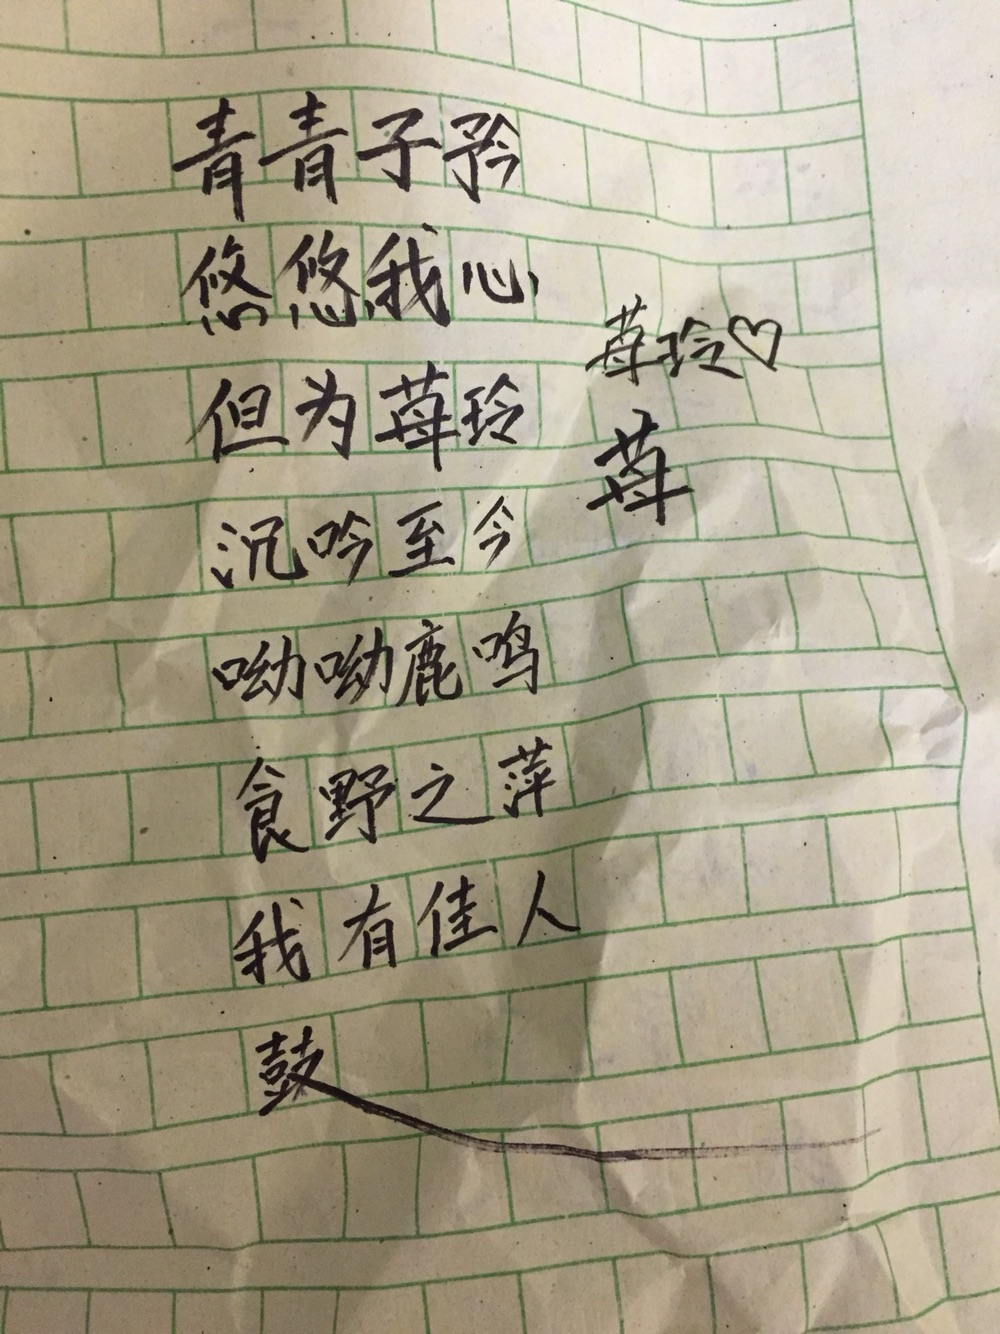 青青子矜
悠悠我心
但为苺玲
沉吟至今
呦呦鹿鸣
食野之萍
我有佳人
鼓
苺玲♡
苺